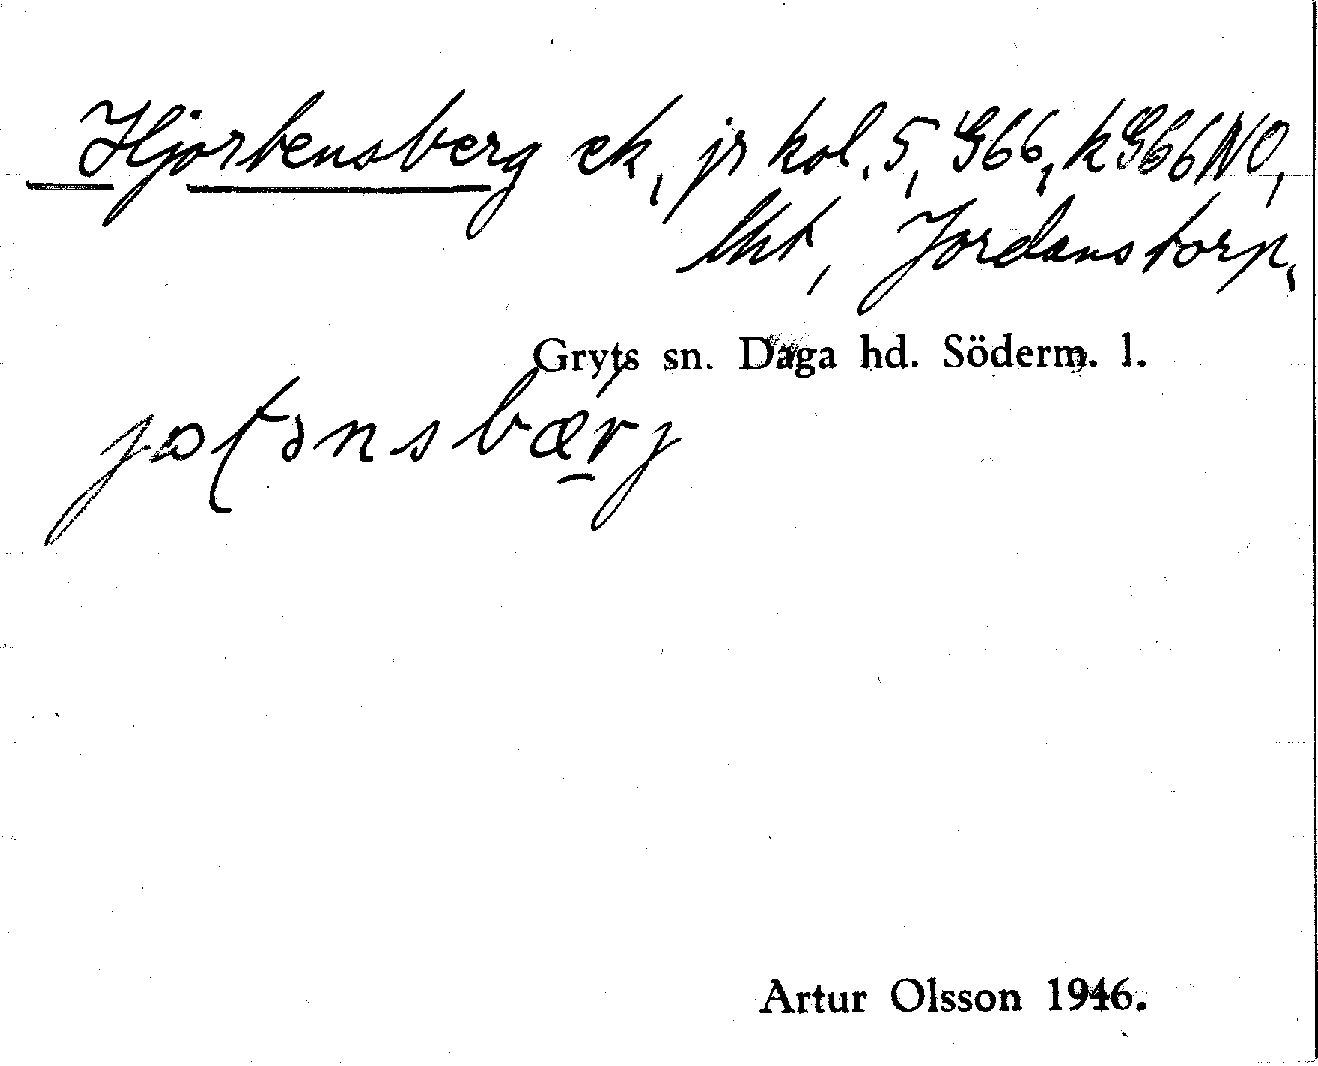 Hjortensberg ek, jr kol. 5, G66, k G66 NO,
lht, Jordanstorp.
Gryts sn. Daga hd. Söderm. l.
Artur Olsson 1946.